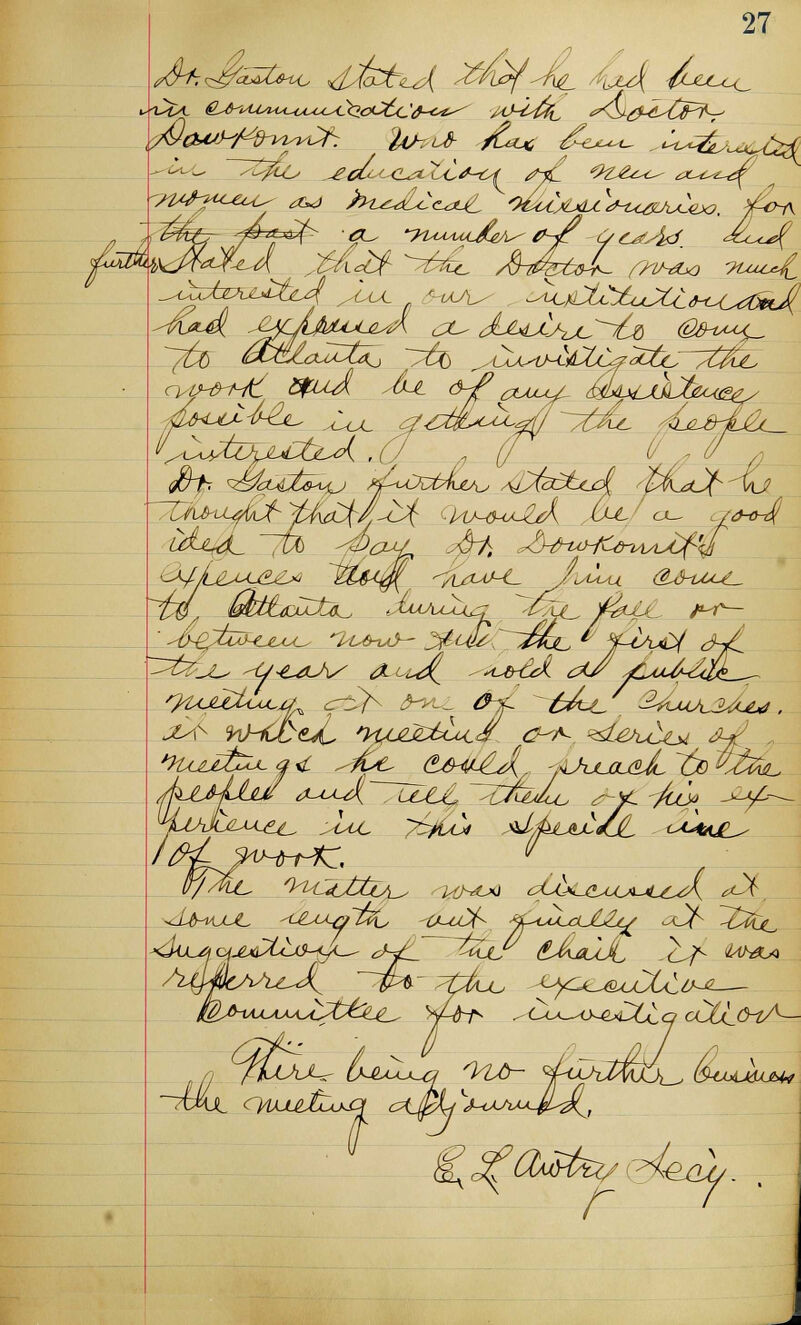 27
Dr. Gaston stated that he had been
in communication with Doctor.
Dowkonnt. Who has been interested
in the education of men and
women as medical missionaries. for
the past a number of years. and
further stated that the Doctor was much
interested in our institution and
had expressed a desire to come
to Atlanta to investigate the
work and be of any assistance
possible in getting the people
interested.
Dr. Gaston further stated that he
thought that it would be a good
idea to pay Dr. Dowkonnt's
expences and have him come
to Atlanta during the fall or
between now and the first of
the year and hold a public
meeting at one of the Churches.
at which meeting or series of
meetings he could preach to the
people and tell them of his ex-
perience in this special line
of work.
The matter was discussed at
some length but finally at the
suggestion of the chair it was
referred to the executive
Committee for investigation
There being no further business
the meeting adjourned.
E. L. Awtry Secy.